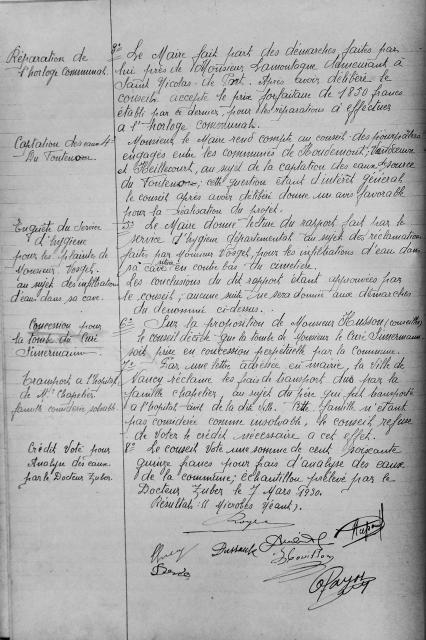 Réparation de
l'horloge communal.
3° Le Maire fait part des démarches faites par
lui près de Monsieur Lamontagne demeurant à
Saint Nicolas-de-Port. Après avoir délibéré le
conseil accepte le prix forfaitaire de 1850 francs
établi par ce dernier, pour les réparations à effectuer
à l'horloge communal.
Captation des eaux 4°
du Fontenoy.
Monsieur le Maire rend compte au conseil des pourparlers
engagés entre les communes de Houdemont,
et Heillecourt, au sujet de la captation des eaux source
du Fontenoy; cette question étant d'intérêt général,
le conseil après avoir délibéré donne un avis favorable
pour la réalisation du projet.
Enquête du Service
d'hygiène
pour les plainte de
Monsieur Vosgel.
au sujet des infiltration
d'eau dans sa cave.
5° Le Maire donne lecture du rapport fait par le
service d'hygiène départemental au sujet des réclamations
faites par Monsieur Vosgel, pour les infiltrations d'eau dans
sa cave située en contre bas du cimetière.
Les conclusions du dit rapport étant approuvées par
le conseil; aucune suite ne sera donnée aux démarches
du dénommé ci-dessus.
Concession pour
la tombe du Curé
Simermann.
6° Sur la proposition de Monsieur Husson (conseiller)
le conseil décide que la tombe de Monsieur le Curé Simermann
soit prise en concession perpétuelle par la Commune.
Transport à l'hôpital
de Mr Chapelier
famille considérée solvable.
7° Par une lettre adressée en mairie, la Ville de
Nancy réclame les frais de transport dus par la
famille chapelier, au sujet du père qui fut transporté
à l'hôpital civil de la dite Ville. Cette famille n'étant
pas considérée comme insolvable, le conseil refuse
de voter le crédit nécessaire à cet effet.
Crédit Voté pour
Analyse des eaux
par le Docteur Zuber.
8° Le conseil Vote une somme de cent soixante
quinze francs pour frais d'analyse des eaux
de la commune; échantillon prélevé par le
Docteur Zuber le 7 Mars 1930.
Résultats: (1 Microbes géant).
Dussaule